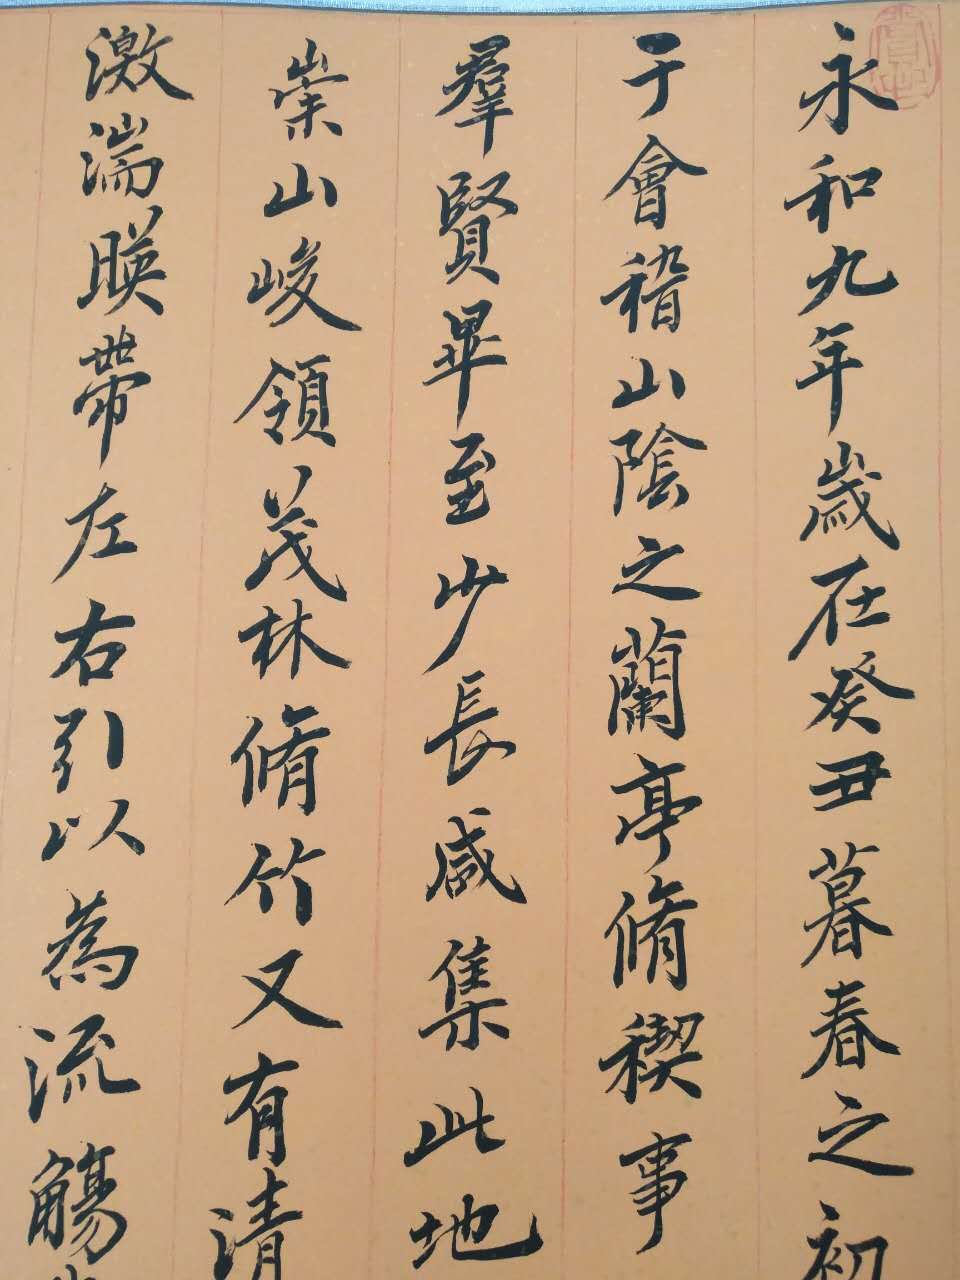 永和九年歲在癸丑暮春之初
于會稽山陰之蘭亭脩禊事
羣賢畢至少長咸集此地
崇山峻領茂林脩竹又有清
激湍暎帶左右引以為流觴